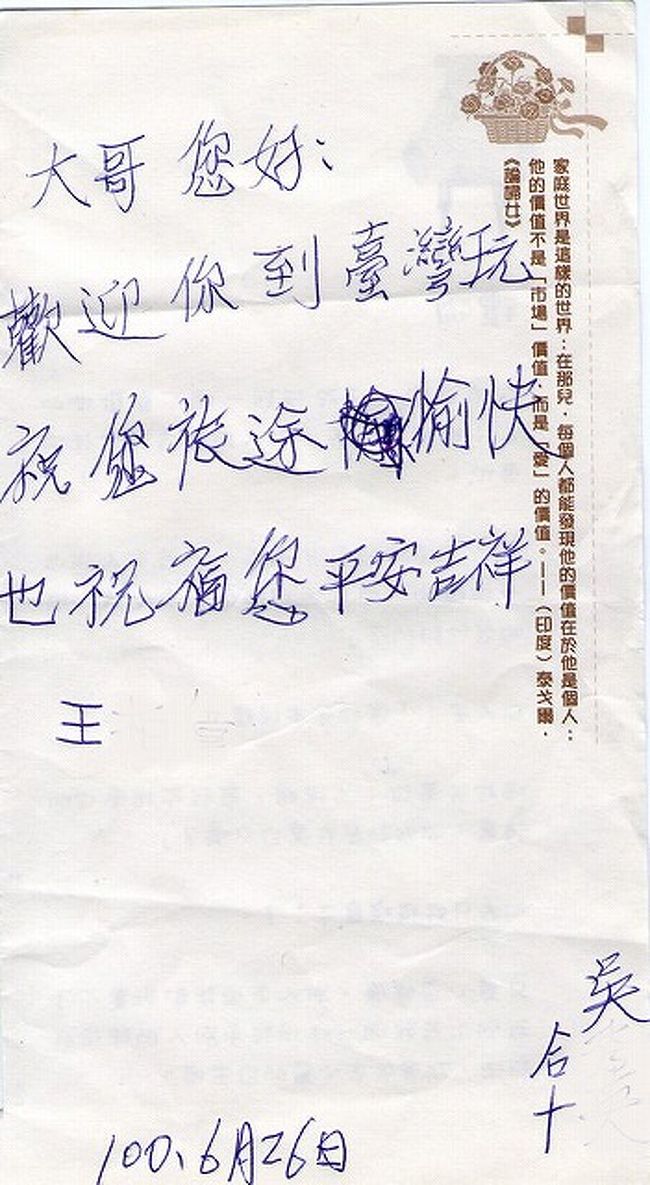 大哥您好：
歡迎你到臺灣玩
祝您旅途愉快
也祝福您平安吉祥
王
吳
合十
100、6月26日
家庭世界是這樣的世界：在那兒，每個人都能發現他的價值在於他是個人；
他的價值不是「市場」價值，而是「愛」的價值。——（印度）泰戈爾．
《論婦女》